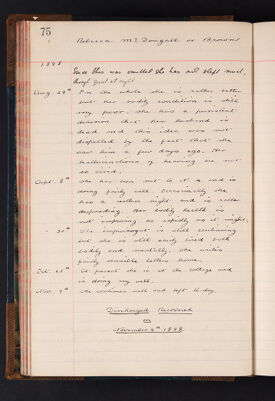 75
Rebecca McDougall or Brown
1898
Since this was omitted she has not slept much,
though quiet at night
Aug. 29th On the whole she is rather better
but her bodily condition is still
very poor, she has a persistent
delusion that her husband is
dead and this idea was not
dispelled by the fact that she
saw him a few days ago. Her
hallucinations of hearing are not
so vivid.
Sept. 8th She has been out to it & and is
doing fairly well. Occasionally she
has a restless night and is rather
desponding. Her bodily health is
not improving as rapidly as it might.
" 30th The improvement is still continuing
but she is still easily tired both
bodily and mentally. She writes
fairly sensible letters home.
Oct. 25th At present she is at the cottage and
is doing very well.
Nov. 9th She continues well and left to-day.
Discharged Recovered
on
November 9th 1898.